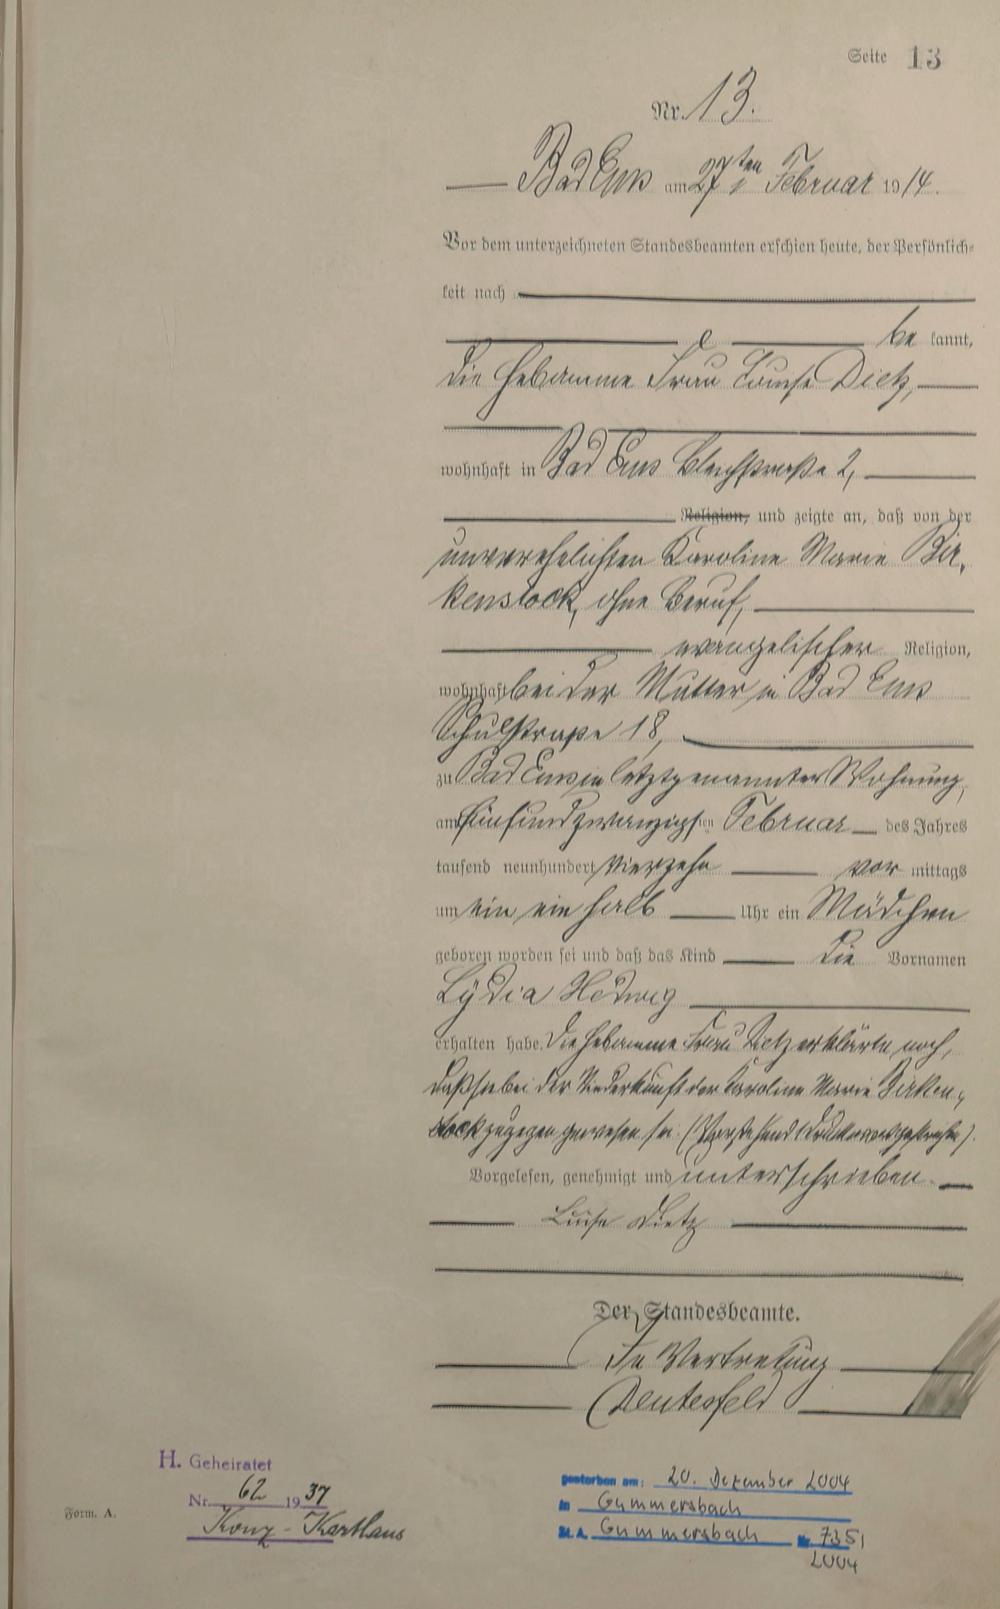 Seite 13
Nr. 13.
Bad Ems am 27ten Februar 1914.
Vor dem unterzeichneten Standesbeamten erschien heute, der Persönlich-
keit nach
be kannt,
die Hebamme Frau Louise Dietz,
wohnhaft in Bad Ems Bleichstraße 2,
Religion, und zeigte an, daß von der
unverehelichten Karoline Marie Bir-
kenstock, ohne Beruf,
evangelischer Religion,
wohnhaft bei der Mutter in Bad Ems
Schulstraße 18,
zu Bad Ems in letztgenannter Wohnung,
am fünfundzwanzigsten Februar des Jahres
tausend neunhundert vierzehn vor mittags
um ein ein halb Uhr ein Mädchen
geboren worden sei und daß das Kind die Vornamen
Lydia Hedwig
erhalten habe. Die Hebamme Frau Dietz erklärte noch,
daß sie bei der Niederkunft der Karoline Marie Birken-
stock zugegen gewesen sei. (Vorstehend 1 Druckwort gestrichen).
Vorgelesen, genehmigt und unterschrieben.
Luise Dietz
Der Standesbeamte.
In Vertretung
H. Geheiratet
Nr. 62 1937
Konz-Karthaus
gestorben am: 20. Dezember 2004
in Gummersbach
St. A. Gummersbach Nr. 735/
2004
Form. A.